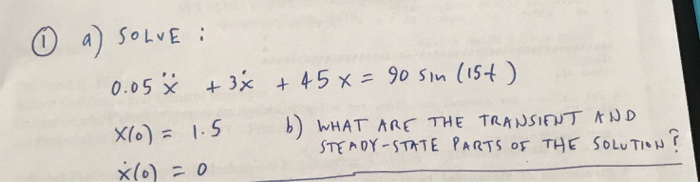 ① a) SOLVE :
0.05 ẍ + 3ẋ + 45 x = 90 sin (15t)
x(0) = 1.5
ẋ(0) = 0
b) WHAT ARE THE TRANSIENT AND
STEADY-STATE PARTS OF THE SOLUTION?